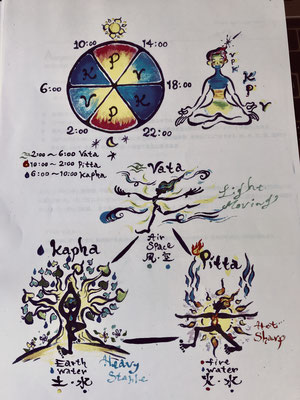 10:00
14:00
K P V
6:00
18:00
V P K
2:00
22:00
V
P
K
K
P
V
2:00 ~ 6:00 Vata
10:00 ~ 2:00 Pitta
6:00 ~ 10:00 Kapha
Vata
Light
Moving
Air
Space
風・空
Kapha
Pitta
Earth
water
土・水
Heavy
Stable
fire
water
火・水
Hot
Sharp